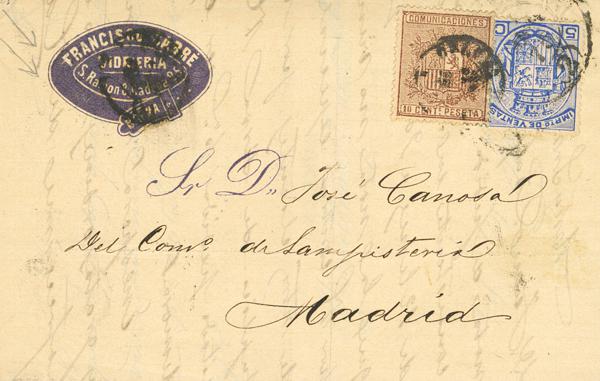 FRANCISCO
VIDRIERIA
COMUNICACIONES
10 CENTS PESETA
5 C
IMPTO DE VENTAS
Sr Dn José Canosa
Del Como de Lampisteria
Madrid